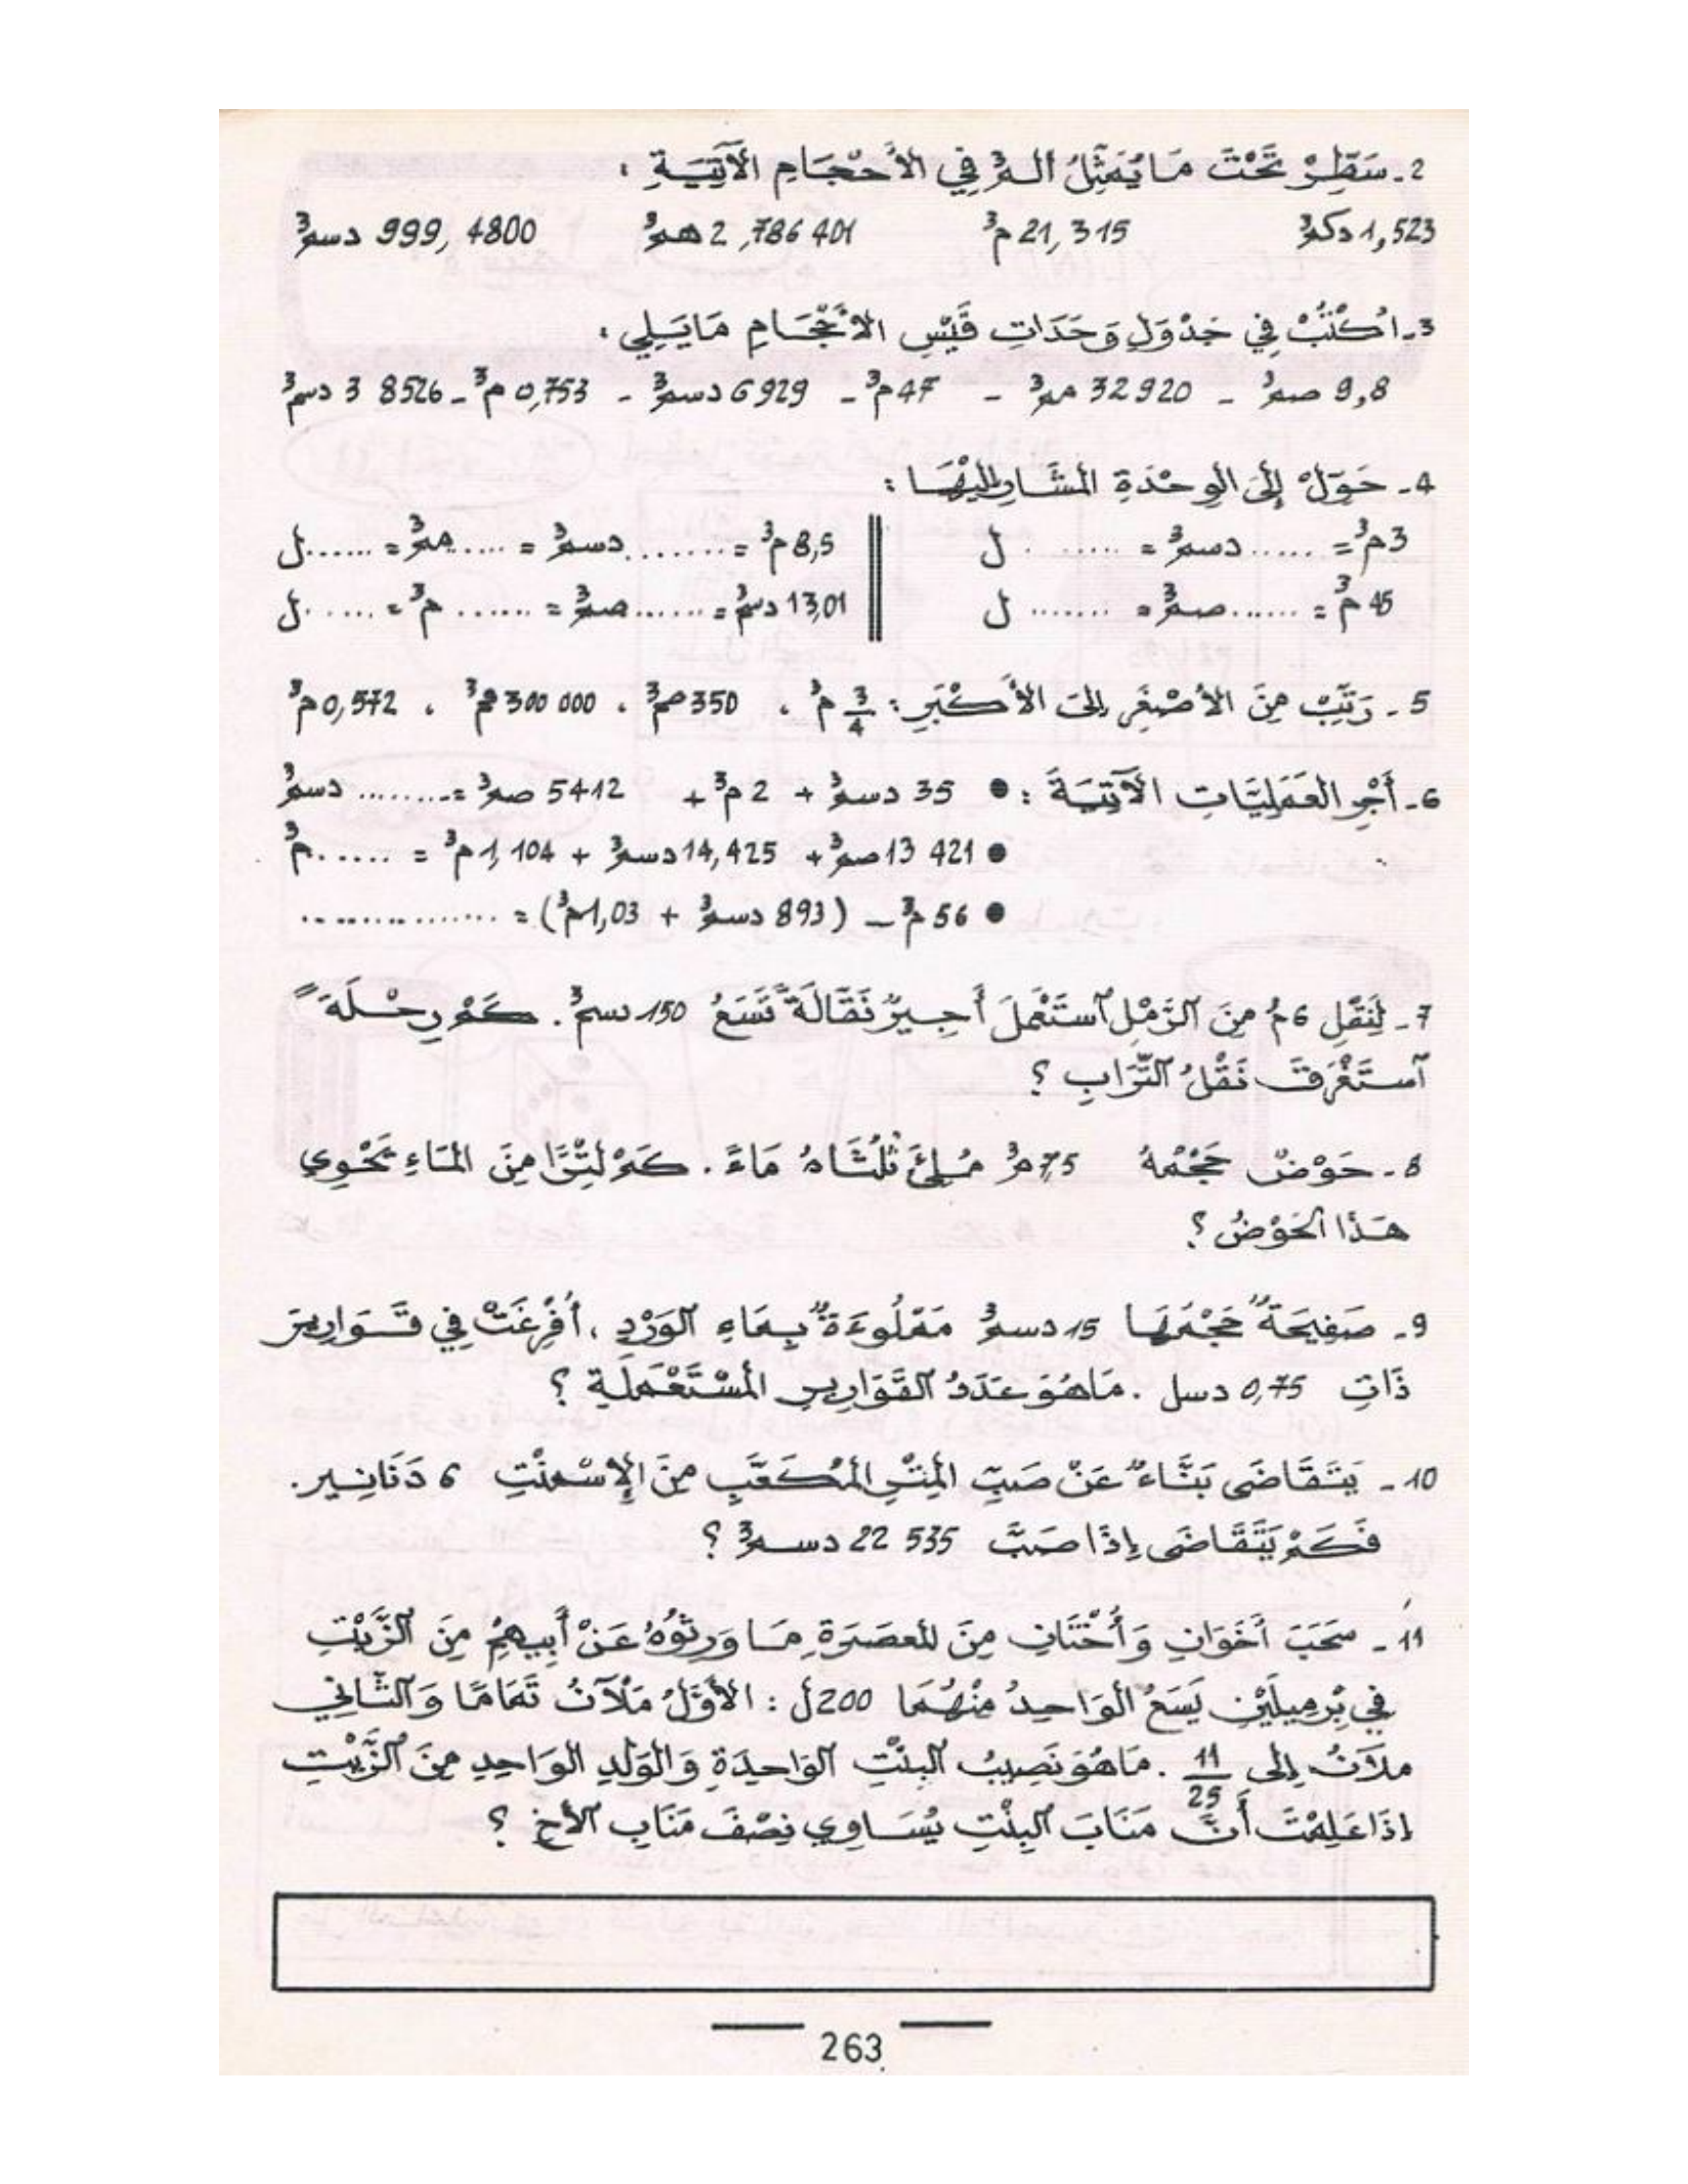 2- سَطِّرْ تَحْتَ مَا يُمَثِّلُ الـمم³ فِي الأَحْجَامِ الآتِيَةِ :
1,523 دكم³ 21,315 م³ 2,786 401 هم³ 999,4800 دسم³
3- اُكْتُبْ فِي جَدْوَلِ وَحَدَاتِ قَيْسِ الأَحْجَامِ مَا يَلِي :
9,8 صم³ - 32 920 مم³ - 47 م³ - 6 929 دسم³ - 0,753 م³ - 3 8526 دسم³
4- حَوِّلْ إِلَى الوِحْدَةِ المُشَارِ إِلَيْهَا :
3 م³ = ...... دسم³ = ...... ل || 8,5 م³ = ........ دسم³ = ..... مم³ = ...... ل
45 م³ = ....... صم³ = ....... ل || 13,01 دسم³ = ....... صم³ = ...... م³ = ..... ل
5- رَتِّبْ مِنَ الأَصْغَرِ إِلَى الأَكْبَرِ : 3/4 م³ ، 350 صم³ ، 300 000 مم³ ، 0,572 م³
6- أَجْرِ العَمَلِيَّاتِ الآتِيَةَ : • 35 دسم³ + 2 م³ + 5412 صم³ = ........ دسم³
• 13 421 صم³ + 14,425 دسم³ + 1,104 م³ = ...... م³
• 56 م³ - (893 دسم³ + 1,03 م³) = ...............
7- لِنَقْلِ 6 م³ مِنَ الرَّمْلِ اسْتَعْمَلَ أَجِيرٌ نَقَّالَةً تَسَعُ 150 دسم³. كَمْ رِحْلَةً
اسْتَغْرَقَ نَقْلُ التُّرَابِ ؟
8- حَوْضٌ حَجْمُهُ 7,5 م³ مُلِئَ ثُلُثَاهُ مَاءً. كَمْ لِتْرًا مِنَ المَاءِ يَحْوِي
هَذَا الحَوْضُ ؟
9- صَفِيحَةٌ حَجْمُهَا 15 دسم³ مَمْلُوءَةٌ بِمَاءِ الوَرْدِ ، أُفْرِغَتْ فِي قَوَارِيرَ
ذَاتِ 0,75 دسل. مَا هُوَ عَدَدُ القَوَارِيرِ المُسْتَعْمَلَةِ ؟
10- يَتَقَاضَى بَنَّاءٌ عَنْ صَبِّ المِتْرِ المُكَعَّبِ مِنَ الإِسْمِنْتِ 6 دَنَانِير.
فَكَمْ يَتَقَاضَى إِذَا صَبَّ 22 535 دسم³ ؟
11- سَحَبَ أَخَوَانِ وَأُخْتَانِ مِنَ المعصَرَةِ مَا وَرِثُوهُ عَنْ أَبِيهِمْ مِنَ الزَّيْتِ
فِي بِرْمِيلَيْنِ يَسَعُ الوَاحِدُ مِنْهُمَا 200 ل : الأَوَّلُ مَلْآنُ تَمَامًا وَالثَّانِي
مَلْآنُ إِلَى 11/25. مَا هُوَ نَصِيبُ البِنْتِ الوَاحِدَةِ وَالوَلَدِ الوَاحِدِ مِنَ الزَّيْتِ
إِذَا عَلِمْتَ أَنَّ مَنَابَ البِنْتِ يُسَاوِي نِصْفَ مَنَابِ الأَخِ ؟
263